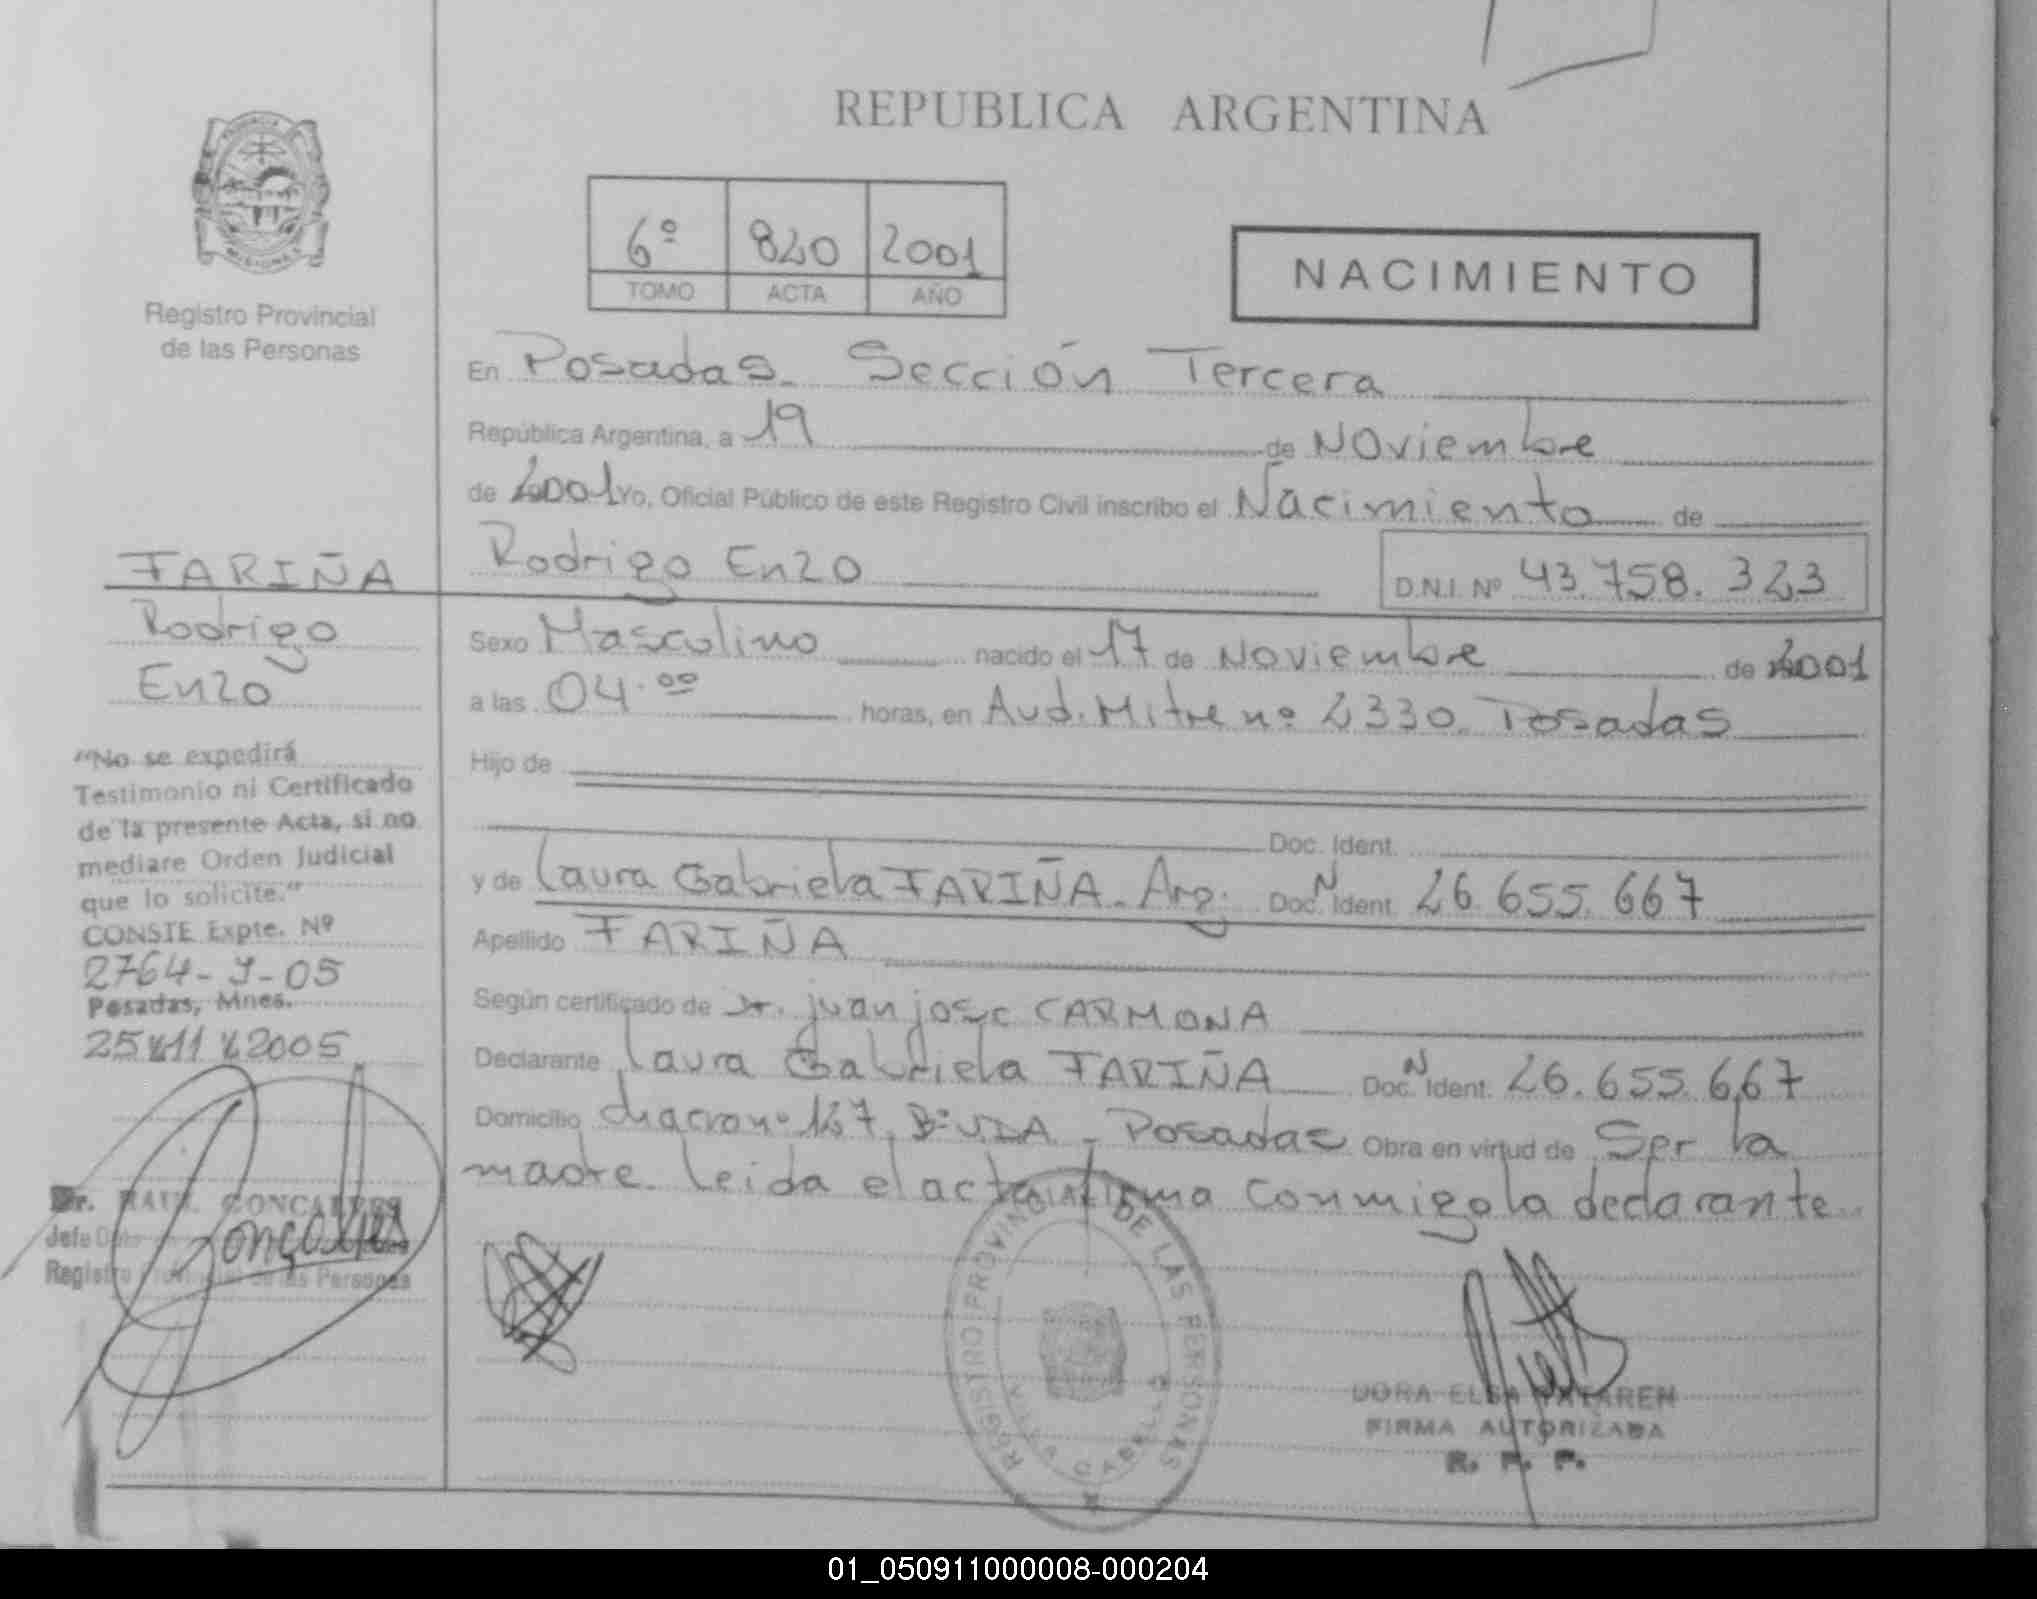 REPUBLICA ARGENTINA
PROVINCIA
MISIONES
Registro Provincial
de las Personas
6º 820 2001
TOMO ACTA AÑO
NACIMIENTO
En Posadas. Sección Tercera
República Argentina, a 19 de Noviembre
de 2001 Yo, Oficial Público de este Registro Civil inscribo el Nacimiento de
Rodrigo Enzo D.N.I. Nº 43.758.323
Sexo Masculino nacido el 17 de Noviembre de 2001
a las 04.00 horas, en Avd. Mitre nº 2330. Posadas
Hijo de
Doc. Ident.
y de Laura Gabriela FARIÑA. Arg. Doc. N Ident. 26.655.667
Apellido FARIÑA
Según certificado de Dr. juan jose CARMONA
Declarante Laura Gabriela FARIÑA Doc. N Ident. 26.655.667
Domicilio chacra nº 127, Bº - Posadas Obra en virtud de Ser la
madre. Leida el acta firma conmigo la declarante
FARIÑA
Rodrigo
Enzo
"No se expedirá
Testimonio ni Certificado
de la presente Acta, si no
mediare Orden Judicial
que lo solicite."
CONSTE Expte. Nº
2764-J-05
Posadas, Mnes.
25 11 2005
Dr. RAUL GONCALVES
Jefe
Registro Provincial de las Personas
REGISTRO PROVINCIAL DE LAS PERSONAS
VILLA CABELLO
DORA ELSA
FIRMA AUTORIZADA
R. P. P.
01_050911000008-000204